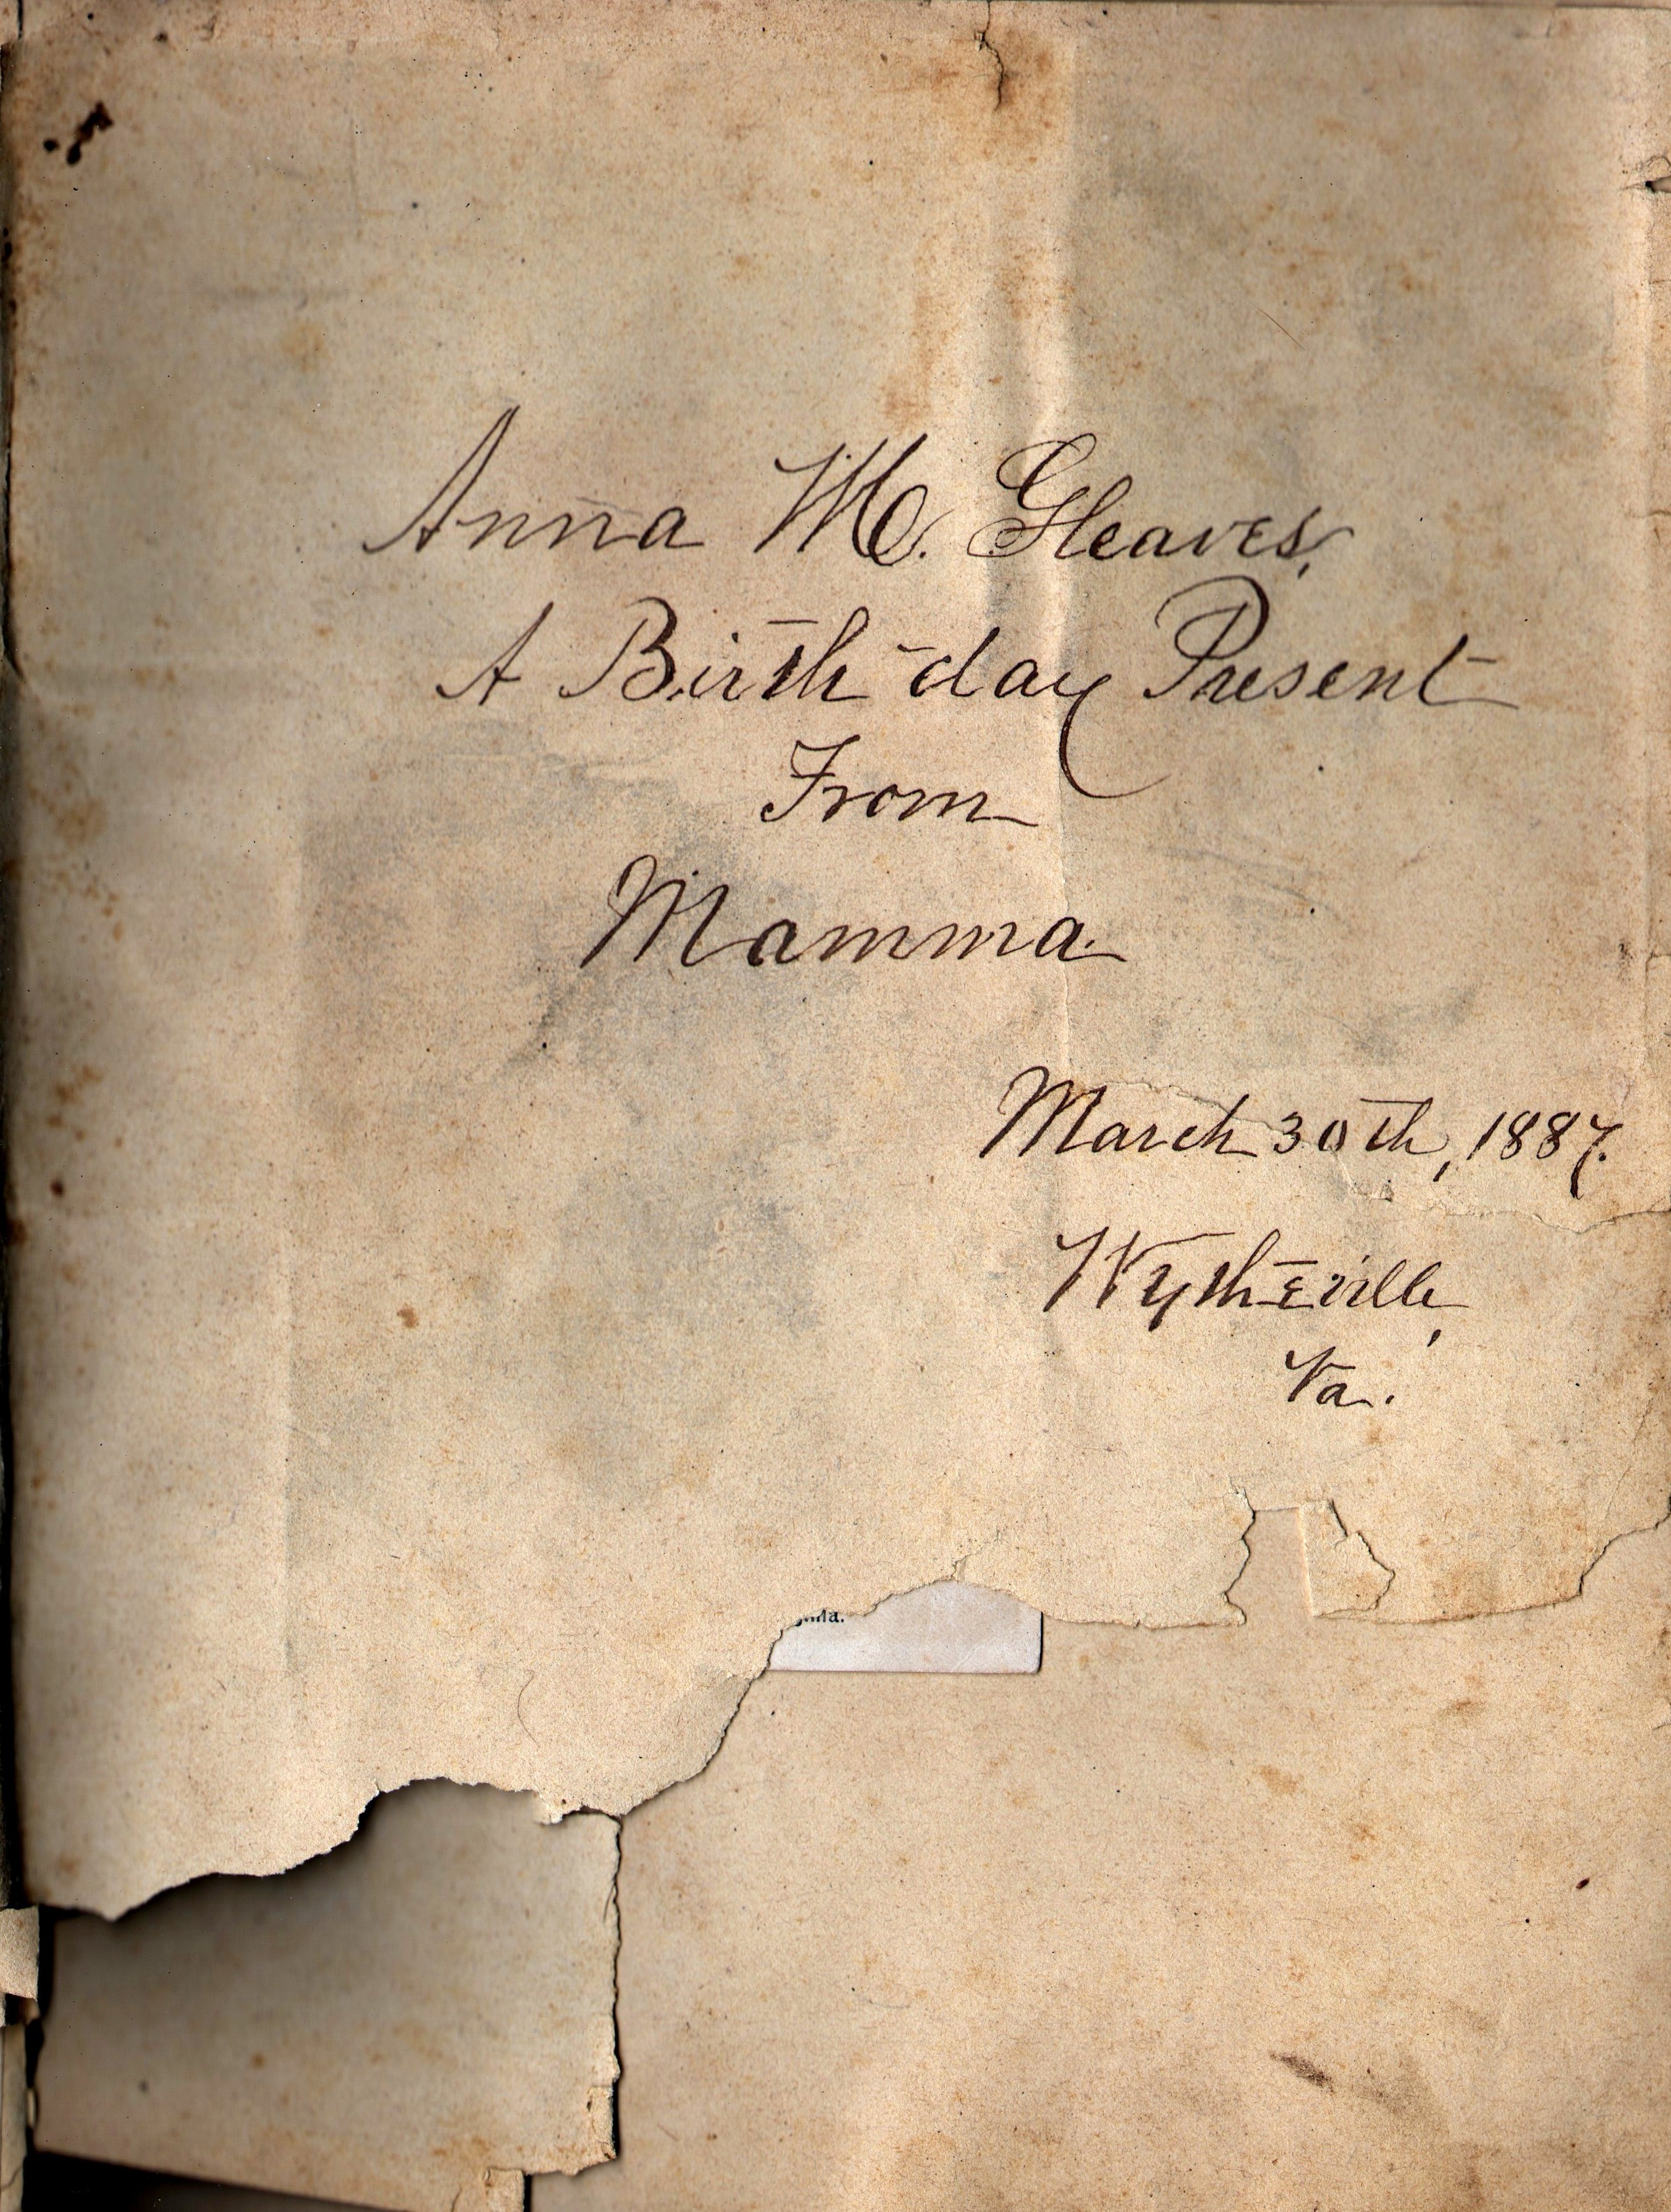 Anna M. Gleaves,
A Birth-day Present
From
Mamma.
March 30th, 1887.
Wytheville,
Va.